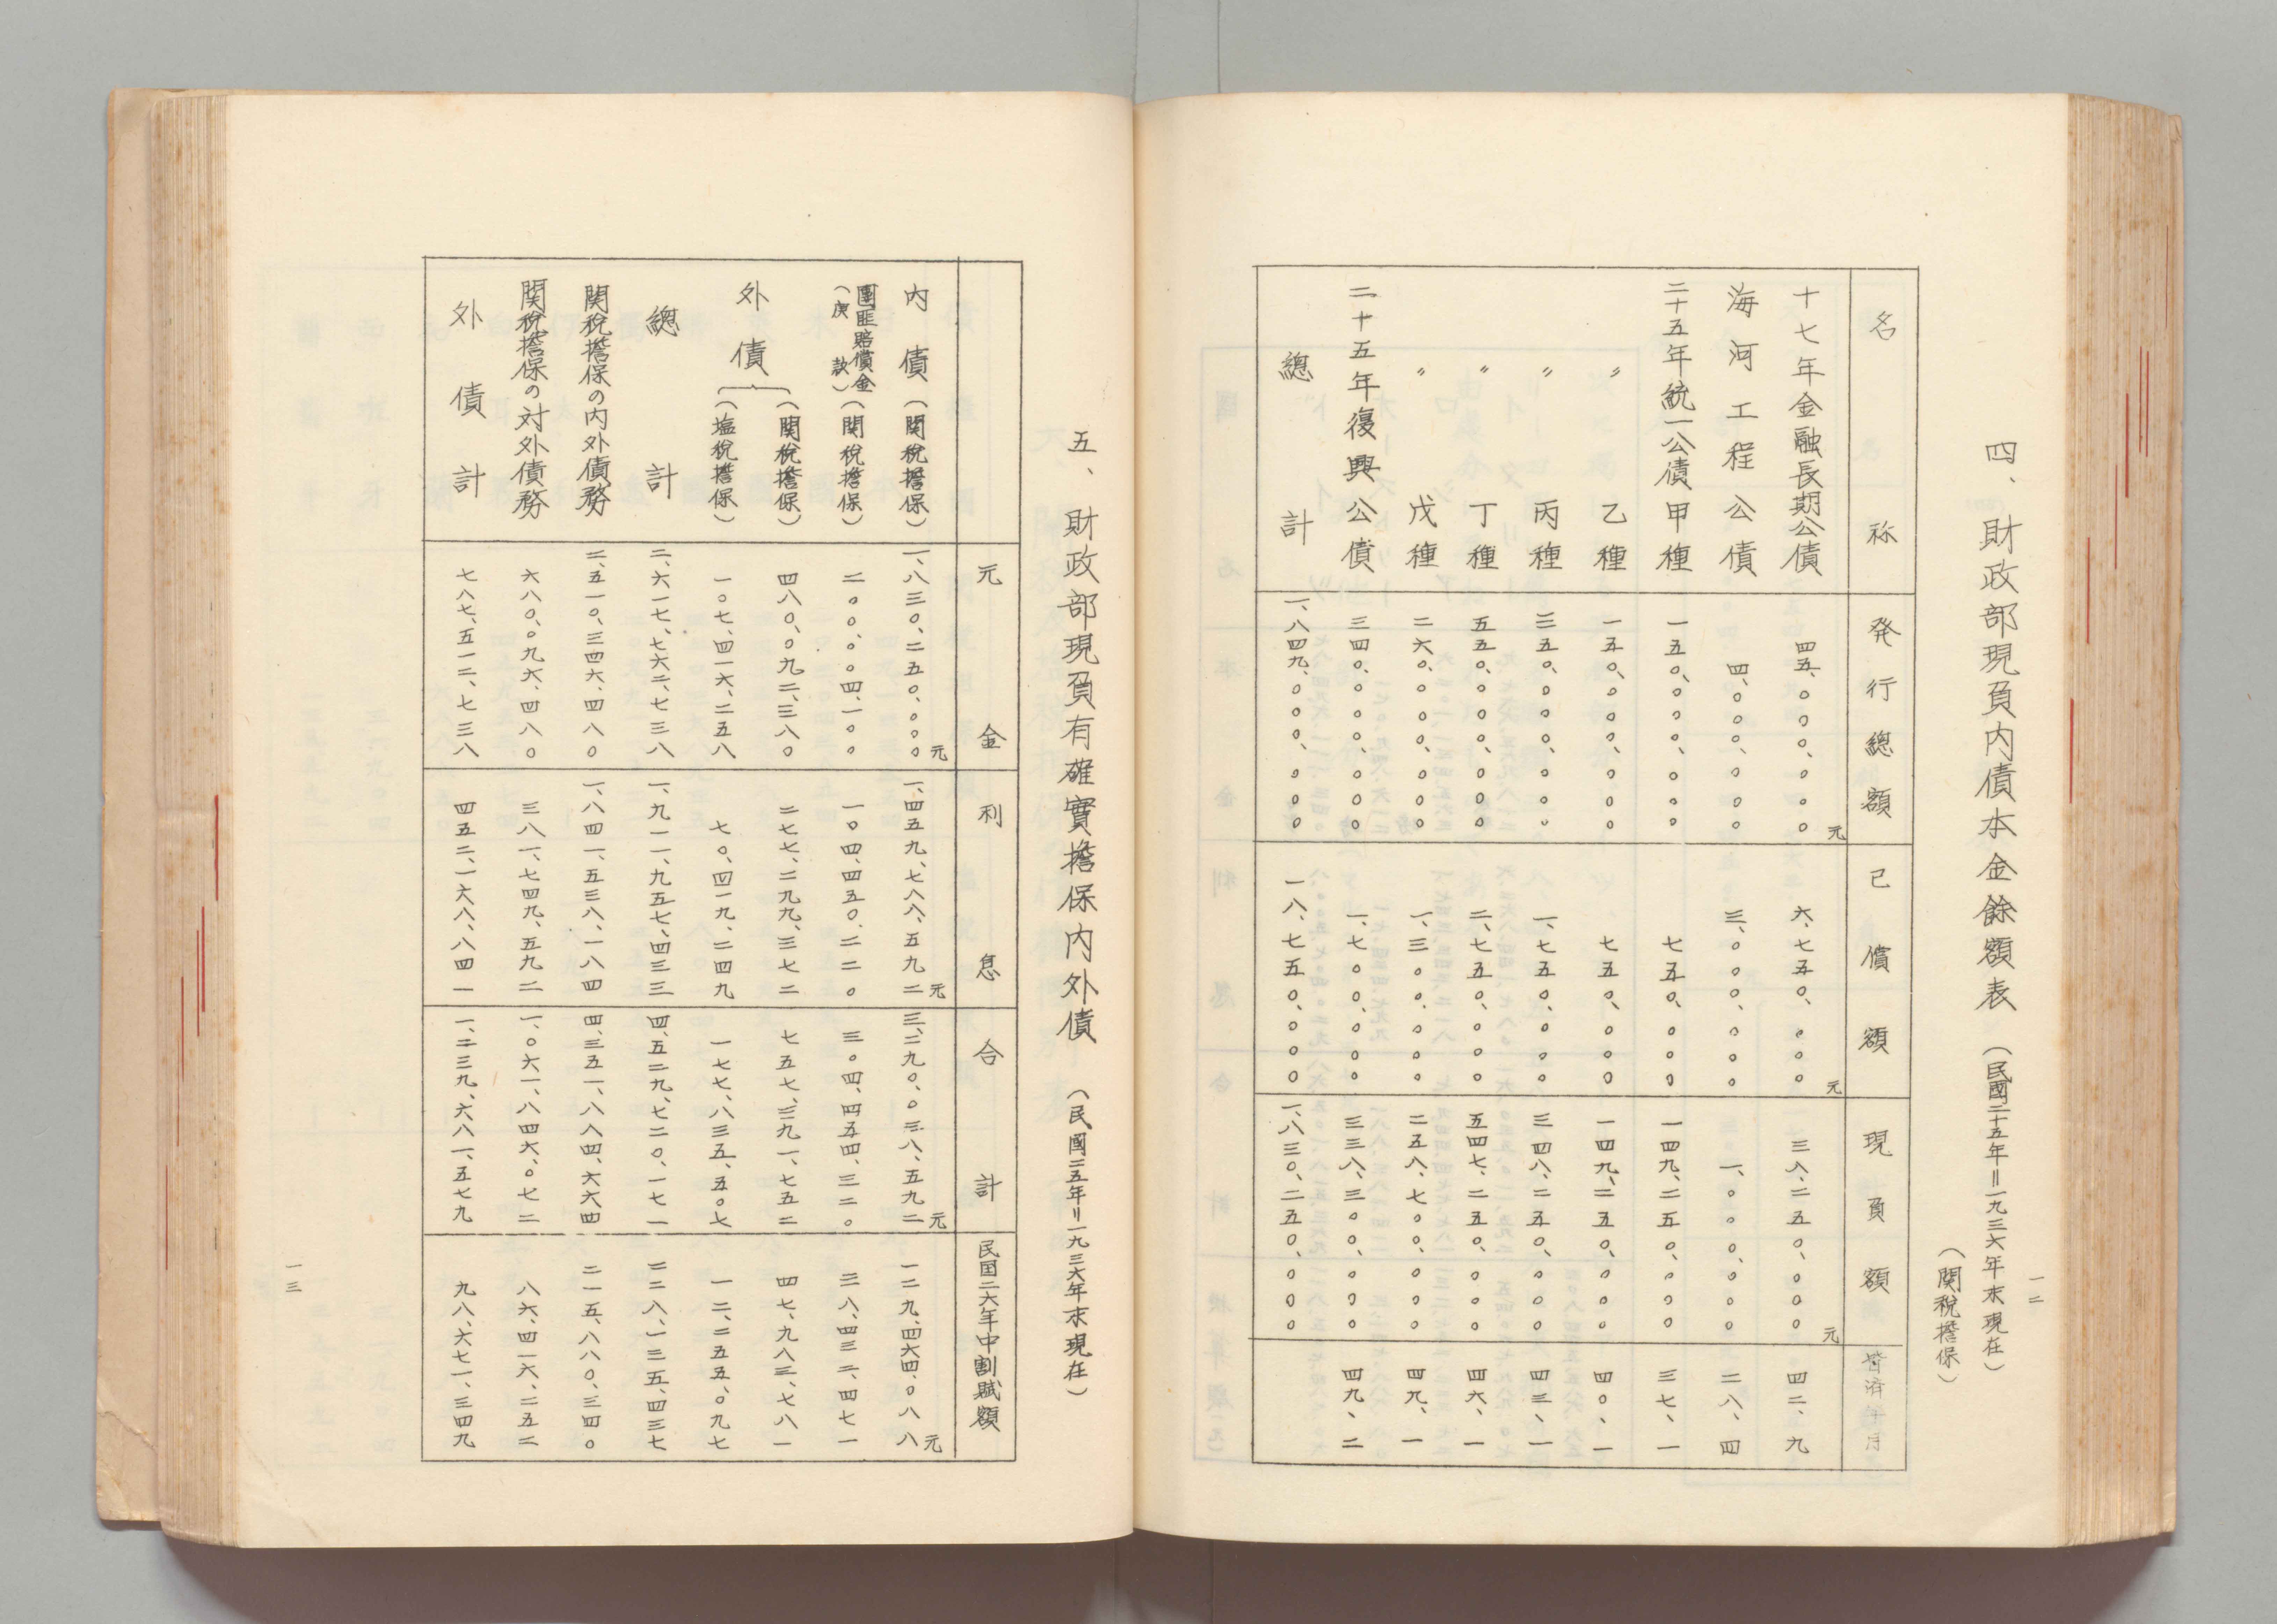 一二
四、財政部現負内債本金餘額表（民國二十五年＝一九三六年末現在）
（関税擔保）
名称 発行總額 已償額 現負額 皆済年月
十七年金融長期公債 四五、〇〇〇、〇〇〇元 六、七五〇、〇〇〇元 三八、二五〇、〇〇〇元 四二、九
海河工程公債 四、〇〇〇、〇〇〇 三、〇〇〇、〇〇〇 一、〇〇〇、〇〇〇 二八、四
二十五年統一公債甲種 一五〇、〇〇〇、〇〇〇 七五〇、〇〇〇 一四九、二五〇、〇〇〇 三七、一
〃 乙種 一五〇、〇〇〇、〇〇〇 七五〇、〇〇〇 一四九、二五〇、〇〇〇 四〇、一
〃 丙種 三五〇、〇〇〇、〇〇〇 一、七五〇、〇〇〇 三四八、二五〇、〇〇〇 四三、一
〃 丁種 五五〇、〇〇〇、〇〇〇 二、七五〇、〇〇〇 五四七、二五〇、〇〇〇 四六、一
〃 戊種 二六〇、〇〇〇、〇〇〇 一、三〇〇、〇〇〇 二五八、七〇〇、〇〇〇 四九、一
二十五年復興公債 三四〇、〇〇〇、〇〇〇 一、七〇〇、〇〇〇 三三八、三〇〇、〇〇〇 四九、二
總計 一、八四九、〇〇〇、〇〇〇 一八、七五〇、〇〇〇 一、八三〇、二五〇、〇〇〇
五、財政部現負有確實擔保内外債（民國二五年＝一九三六年末現在）
元金 利息 合計 民国二六年中割賦額
内債（関税擔保） 一、八三〇、二五〇、〇〇〇元 一、四五九、七八八、五九二元 三、二九〇、〇三八、五九二元 一二九、四六四、〇八八元
團匪賠償金（庚款）（関税擔保） 二〇〇、〇〇四、一〇〇 一〇四、四五〇、二二〇 三〇四、四五四、三二〇 三八、四三二、四七一
外債（関税擔保） 四八〇、〇九二、三八〇 二七七、二九九、三七二 七五七、三九一、七五二 四七、九八三、七八一
（塩税擔保） 一〇七、四一六、二五八 七〇、四一九、二四九 一七七、八三五、五〇七 一二、二五五、〇九七
總計 二、六一七、七六二、七三八 一、九一一、九五七、四三三 四、五二九、七二〇、一七一 二二八、一三五、四三七
関税擔保の内外債務 二、五一〇、三四六、四八〇 一、八四一、五三八、一八四 四、三五一、八八四、六六四 二一五、八八〇、三四〇
関税擔保の対外債務 六八〇、〇九六、四八〇 三八一、七四九、五九二 一、〇六一、八四六、〇七二 八六、四一六、二五二
外債計 七八七、五一二、七三八 四五二、一六八、八四一 一、二三九、六八一、五七九 九八、六七一、三四九
一三